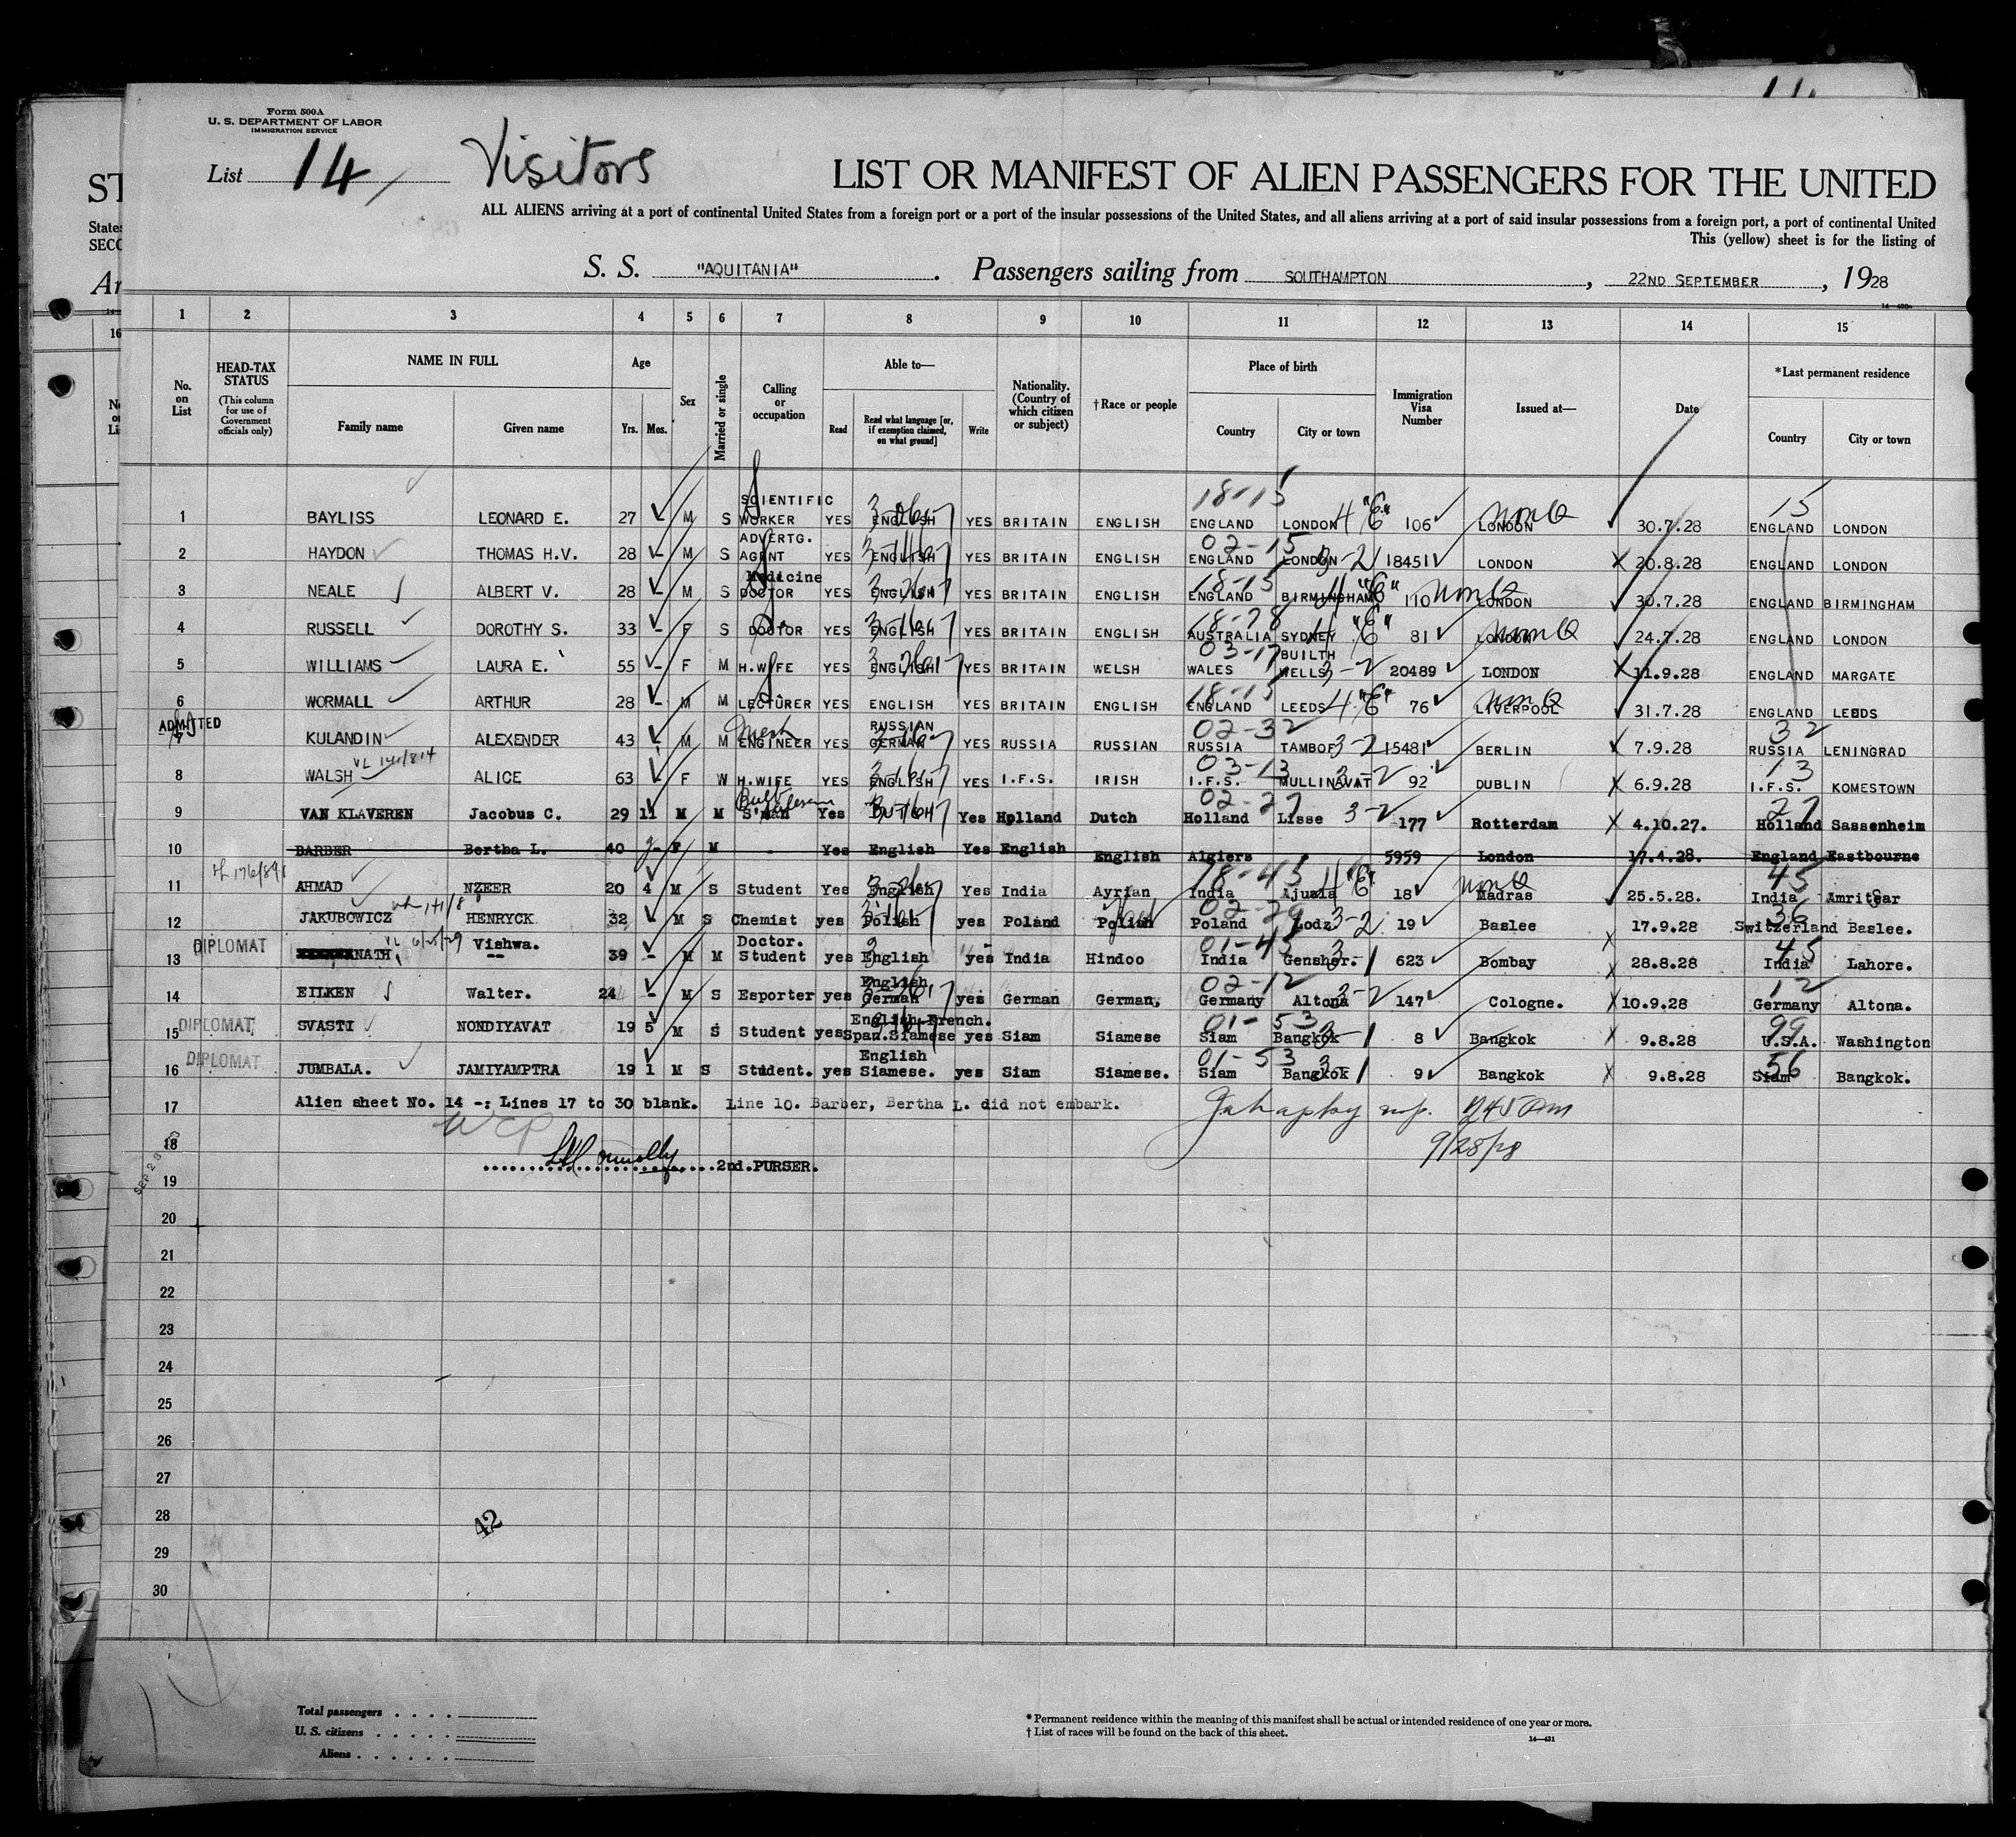 Form 500A
U. S. DEPARTMENT OF LABOR
IMMIGRATION SERVICE
List 14 Visitors
LIST OR MANIFEST OF ALIEN PASSENGERS FOR THE UNITED
ALL ALIENS arriving at a port of continental United States from a foreign port or a port of the insular possessions of the United States, and all aliens arriving at a port of said insular possessions from a foreign port, a port of continental United
This (yellow) sheet is for the listing of
S. S. "AQUITANIA". Passengers sailing from SOUTHAMPTON, 22ND SEPTEMBER, 1928
1 2 3 4 5 6 7 8 9 10 11 12 13 14 15
No. on List
HEAD-TAX STATUS (This column for use of Government officials only)
NAME IN FULL
Family name Given name
Age
Yrs. Mos.
Sex
Married or single
Calling or occupation
Able to—
Read
Read what language [or, if exemption claimed, on what ground]
Write
Nationality. (Country of which citizen or subject)
†Race or people
Place of birth
Country City or town
Immigration Visa Number
Issued at—
Date
*Last permanent residence
Country City or town
1 BAYLISS LEONARD E. 27 - M S SCIENTIFIC WORKER YES ENGLISH YES BRITAIN ENGLISH 18-15 ENGLAND LONDON 4"6" 106 LONDON Non Q 30.7.28 15 ENGLAND LONDON
2 HAYDON THOMAS H.V. 28 - M S ADVERTG. AGENT YES ENGLISH YES BRITAIN ENGLISH 02-15 ENGLAND LONDON 3-2 18451 LONDON 20.8.28 ENGLAND LONDON
3 NEALE ALBERT V. 28 - M S Medicine DOCTOR YES ENGLISH YES BRITAIN ENGLISH 18-15 ENGLAND BIRMINGHAM 4"6" 110 LONDON Non Q 30.7.28 ENGLAND BIRMINGHAM
4 RUSSELL DOROTHY S. 33 - F S DOCTOR YES ENGLISH YES BRITAIN ENGLISH 18-78 AUSTRALIA SYDNEY 4"6" 81 LONDON Non Q 24.7.28 ENGLAND LONDON
5 WILLIAMS LAURA E. 55 - F M H.WIFE YES ENGLISH YES BRITAIN WELSH 03-17 WALES BUILTH WELLS 3-2 20489 LONDON 11.9.28 ENGLAND MARGATE
6 WORMALL ARTHUR 28 - M M LECTURER YES ENGLISH YES BRITAIN ENGLISH 18-15 ENGLAND LEEDS 4"6" 76 LIVERPOOL Non Q 31.7.28 ENGLAND LEEDS
ADMITTED
7 KULANDIN ALEXENDER 43 - M M Mech ENGINEER YES RUSSIAN GERMAN YES RUSSIA RUSSIAN 02-32 RUSSIA TAMBOF 3-2 15481 BERLIN 7.9.28 32 RUSSIA LENINGRAD
8 WALSH ALICE 63 F W H.WIFE YES ENGLISH YES I.F.S. IRISH 03-13 I.F.S. MULLINAVAT 3-2 92 DUBLIN 6.9.28 13 I.F.S. KOMESTOWN
9 VAN KLAVEREN Jacobus C. 29 11 M M Bulb Salesman S'man Yes DUTCH Yes Holland Dutch 02-27 Holland Lisse 3-2 177 Rotterdam 4.10.27. 27 Holland Sassenheim
10 BARBER Bertha L. 40 - F M - Yes English Yes English English Algiers 5959 London 17.4.28. England Eastbourne
11 AHMAD NZEER 20 4 M S Student Yes English Yes India Ayrian 18-45 India Ajuala 4"6" 18 Madras Non Q 25.5.28. 45 India Amritsar
12 JAKUBOWICZ HENRYCK 32 M S Chemist yes Polish yes Poland Polish 02-29 Poland Lodz 3-2 19 Baslee 17.9.28 36 Switzerland Baslee.
DIPLOMAT
13 NATH Vishwa. 39 - M M Doctor. Student yes English yes India Hindoo 01-45 India Gensher. 3-1 623 Bombay 28.8.28 45 India Lahore.
14 EILKEN Walter. 24 - M S Esporter yes English German yes German German, 02-12 Germany Altona 3-2 147 Cologne. 10.9.28 12 Germany Altona.
DIPLOMAT
15 SVASTI NONDIYAVAT 19 5 M S Student yes English French. Span.Siamese yes Siam Siamese 01-53 Siam Bangkok 3-1 8 Bangkok 9.8.28 99 U.S.A. Washington
DIPLOMAT
16 JUMBALA. JAMIYAMPTRA 19 1 M S Student. yes English Siamese. yes Siam Siamese. 01-53 Siam Bangkok 3-1 9 Bangkok 9.8.28 56 Siam Bangkok.
17 Alien sheet No. 14 -: Lines 17 to 30 blank. Line 10. Barber, Bertha L. did not embark.
18 9/28/28
2nd.PURSER.
19
20
21
22
23
24
25
26
27
28
42
29
30
Total passengers
U. S. citizens
Aliens
* Permanent residence within the meaning of this manifest shall be actual or intended residence of one year or more.
† List of races will be found on the back of this sheet.
14—431